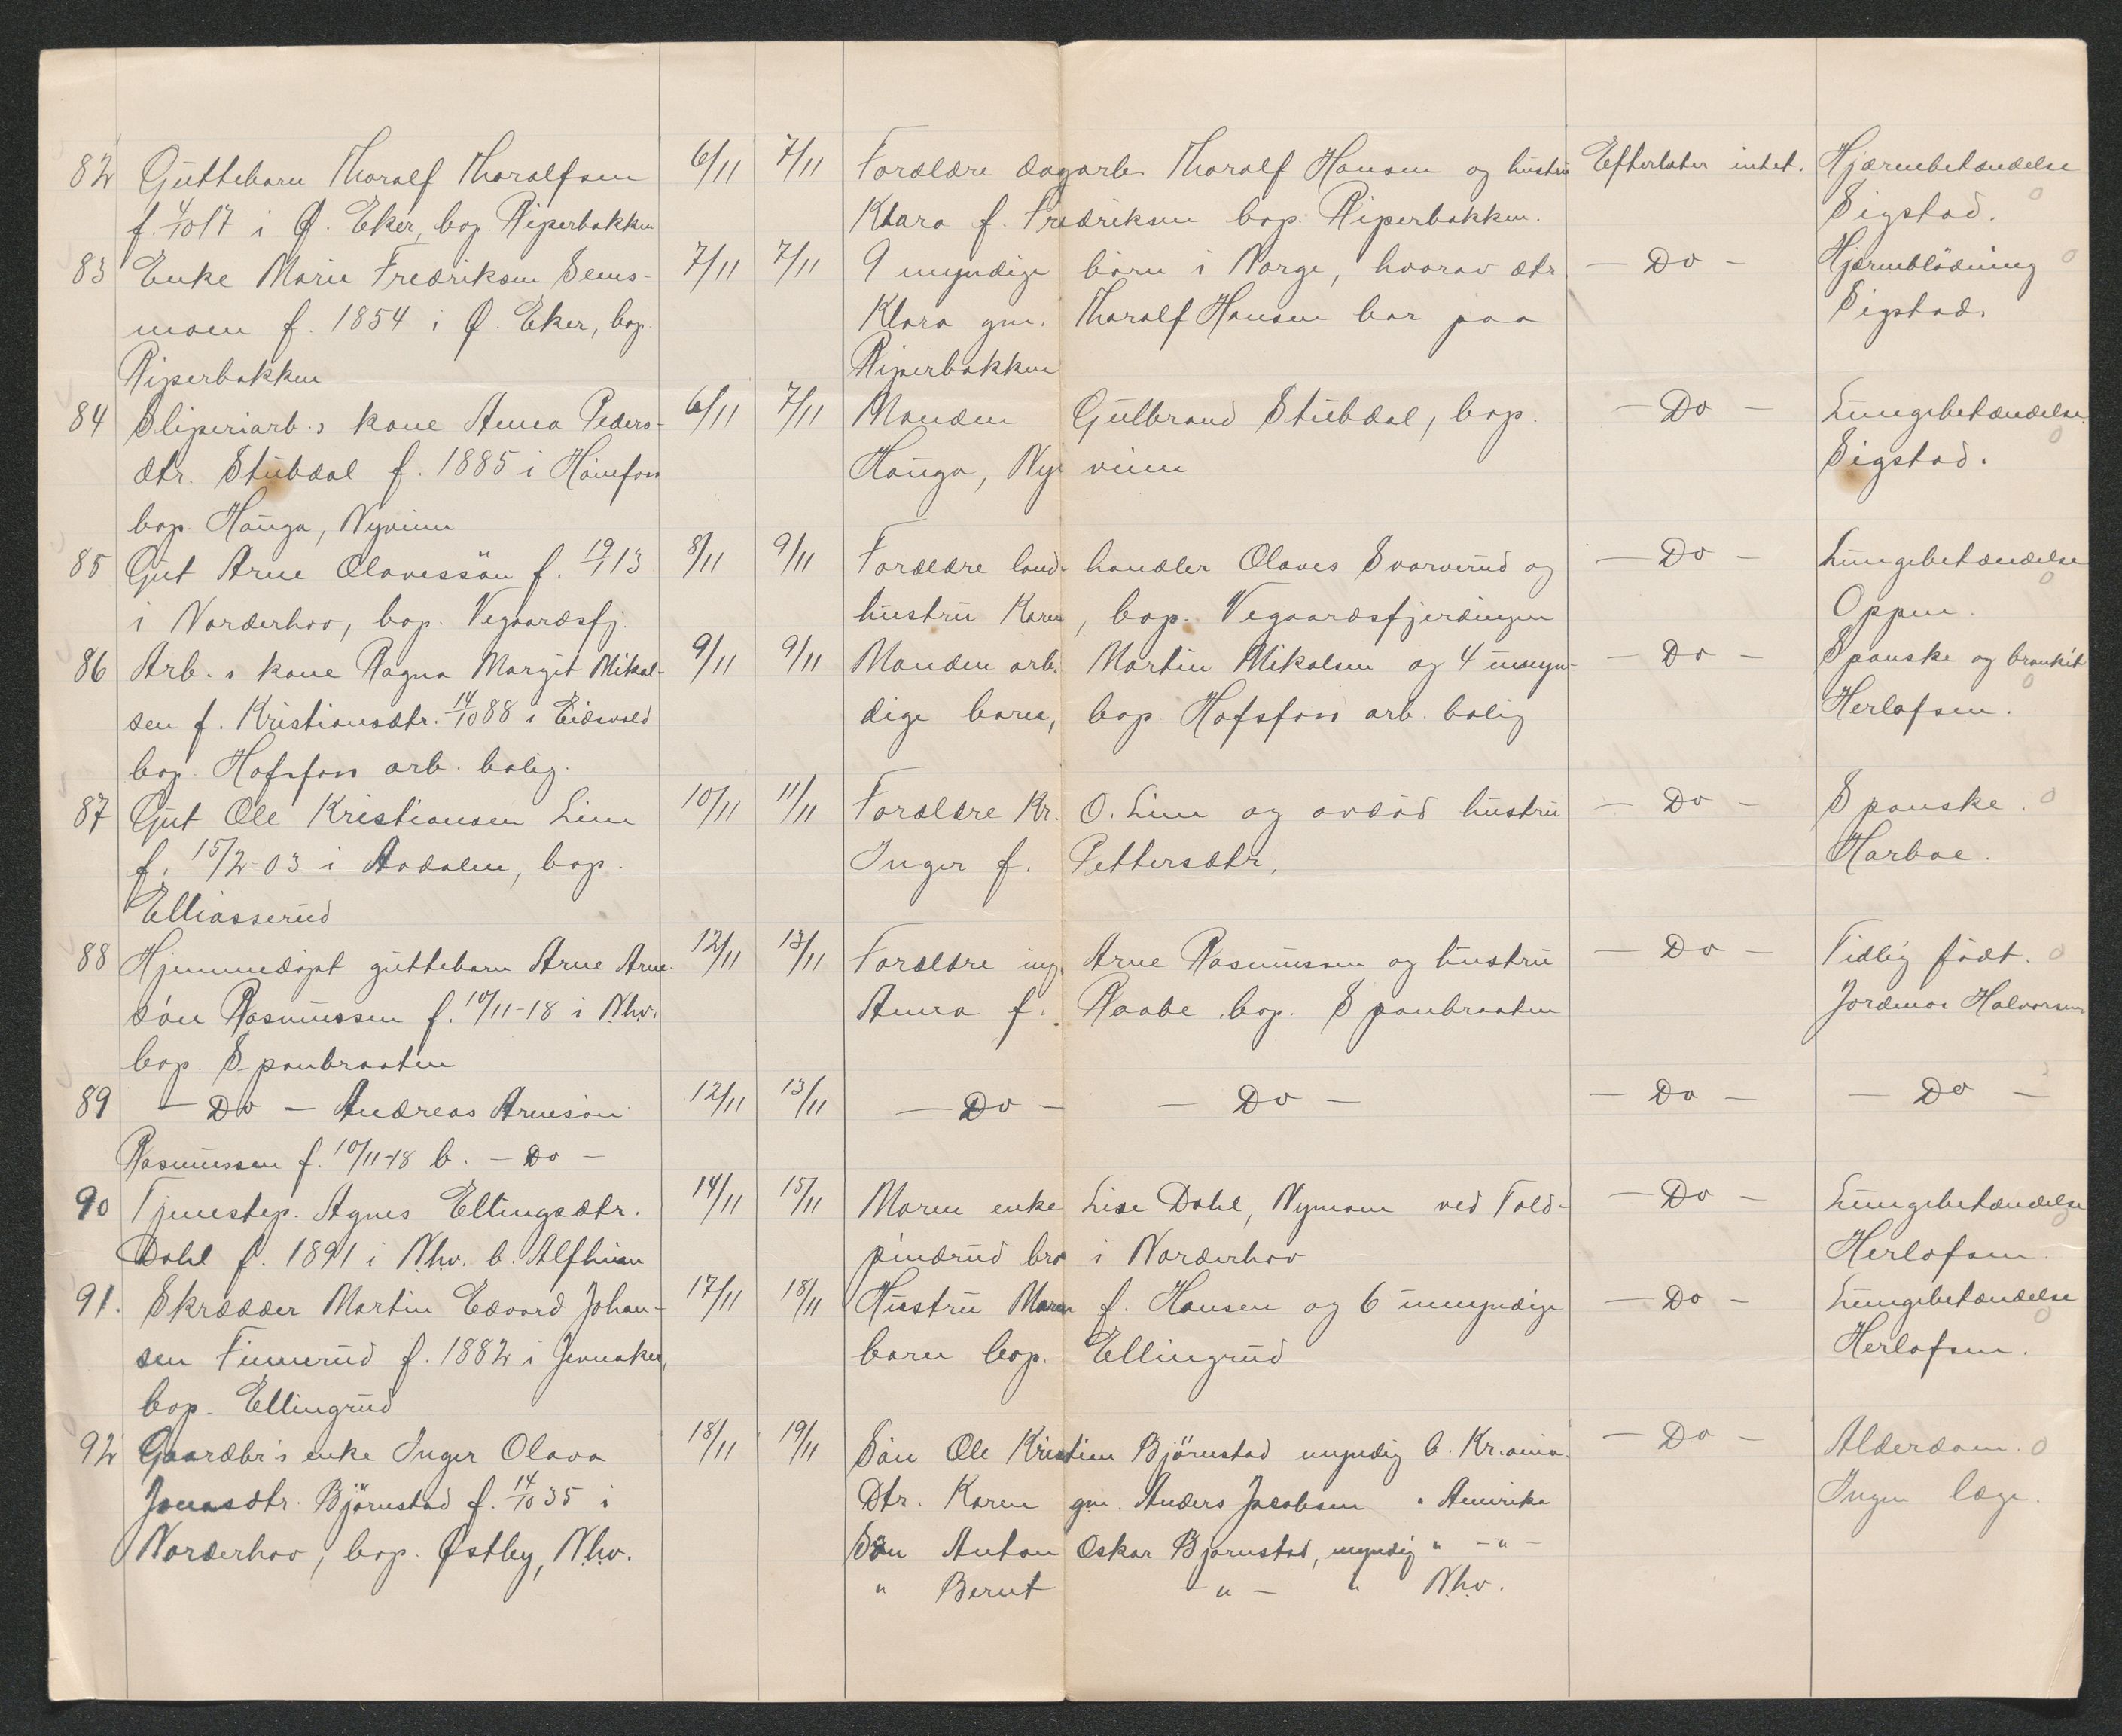 82 Guttebarn Thoralf Thoralfsen 6/11 7/11 Forældre dagarb. Thoralf Hansen og hustru Efterlater intet. Hjærnebetændelse
f. 4/10 17 i Ø. Eker, bop. Riperbakken Klara f. Fredriksen bop. Riperbakken. Sigstad.
83 Enke Marie Fredriksen Sems- 7/11 7/11 9 myndige børn i Norge, hvorav dtr. — Do — Hjærneblödning
moen f. 1854 i Ø. Eker, bop. Klara gm. Thoralf Hansen bor paa Sigstad.
Riperbakken Riperbakken
84 Sliperiarb.s kone Anna Peders- 6/11 7/11 Manden Gulbrand Stubdal, bop. — Do — Lungebetændelse.
dtr. Stubdal f. 1885 i Hönefoss Hauga, Nyveien Sigstad.
bop. Hauga, Nyveien
85 Gut Arne Olavessön f. 19/1 13 8/11 9/11 Forældre land- handler Olaves Svarverud og — Do — Lungebetændelse
i Norderhov, bop. Vegaardsfj. hustru Karen, bop. Vegaardsfjerdingen Oppen.
86 Arb.s kone Ragna Margit Mikal- 9/11 9/11 Manden arb. Martin Mikalsen og 4 umyn- — Do — Spanske og bronkit
sen f. Kristiansdtr. 14/10 88 i Eidsvold dige barn, bop. Hofsfoss arb. bolig Herlofsen.
bop. Hofsfoss arb. bolig.
87 Gut Ole Kristiansen Lien 10/11 11/11 Forældre Kr. O. Lien og avdød hustru — Do — Spanske.
f. 15/2-03 i Aadalen, bop. Inger f. Pettersdtr. Harboe.
Elliasserud
88 Hjemmedøpt guttebarn Arne Arne- 12/11 13/11 Forældre ing. Arne Rasmussen og hustru — Do — Tidlig født.
sön Rasmussen f. 10/11-18 i Nhv. Anna f. Raabe bop. Spanbraaten Jordmor Halvorsen
bop. Spanbraaten
89 — Do — Andreas Arnesön 12/11 13/11 — Do — — Do — — Do — — Do —
Rasmussen f. 10/11-18 b. — Do —
90 Tjenestep. Agnes Ellingsdtr. 14/11 15/11 Moren enke Lise Dahl, Nymoen ved Fold- — Do — Lungebetændelse
Dahl f. 1891 i Nhv. b. Alfheim pindrud bro i Norderhov Herlofsen.
91. Skrædder Martin Edvard Johan- 17/11 18/11 Hustru Maren f. Hansen og 6 umyndige — Do — Lungebetændelse
sen Finnerud f. 1882 i Jevnaker, barn bop. Ellingrud Herlofsen.
bop. Ellingrud
92 Gaardbr's enke Inger Olava 18/11 19/11 Sön Ole Kristian Björnstad myndig b. Kr.ania. — Do — Alderdom.
Jonasdtr. Björnstad f. 14/10 35 i Dtr. Karen gm. Anders Jacobsen " Amerika Ingen læge.
Norderhov, bop. Østby, Nhv. Sön Anton Oskar Bjørnstad, myndig " — " —
" Bernt — " — " Nhv.